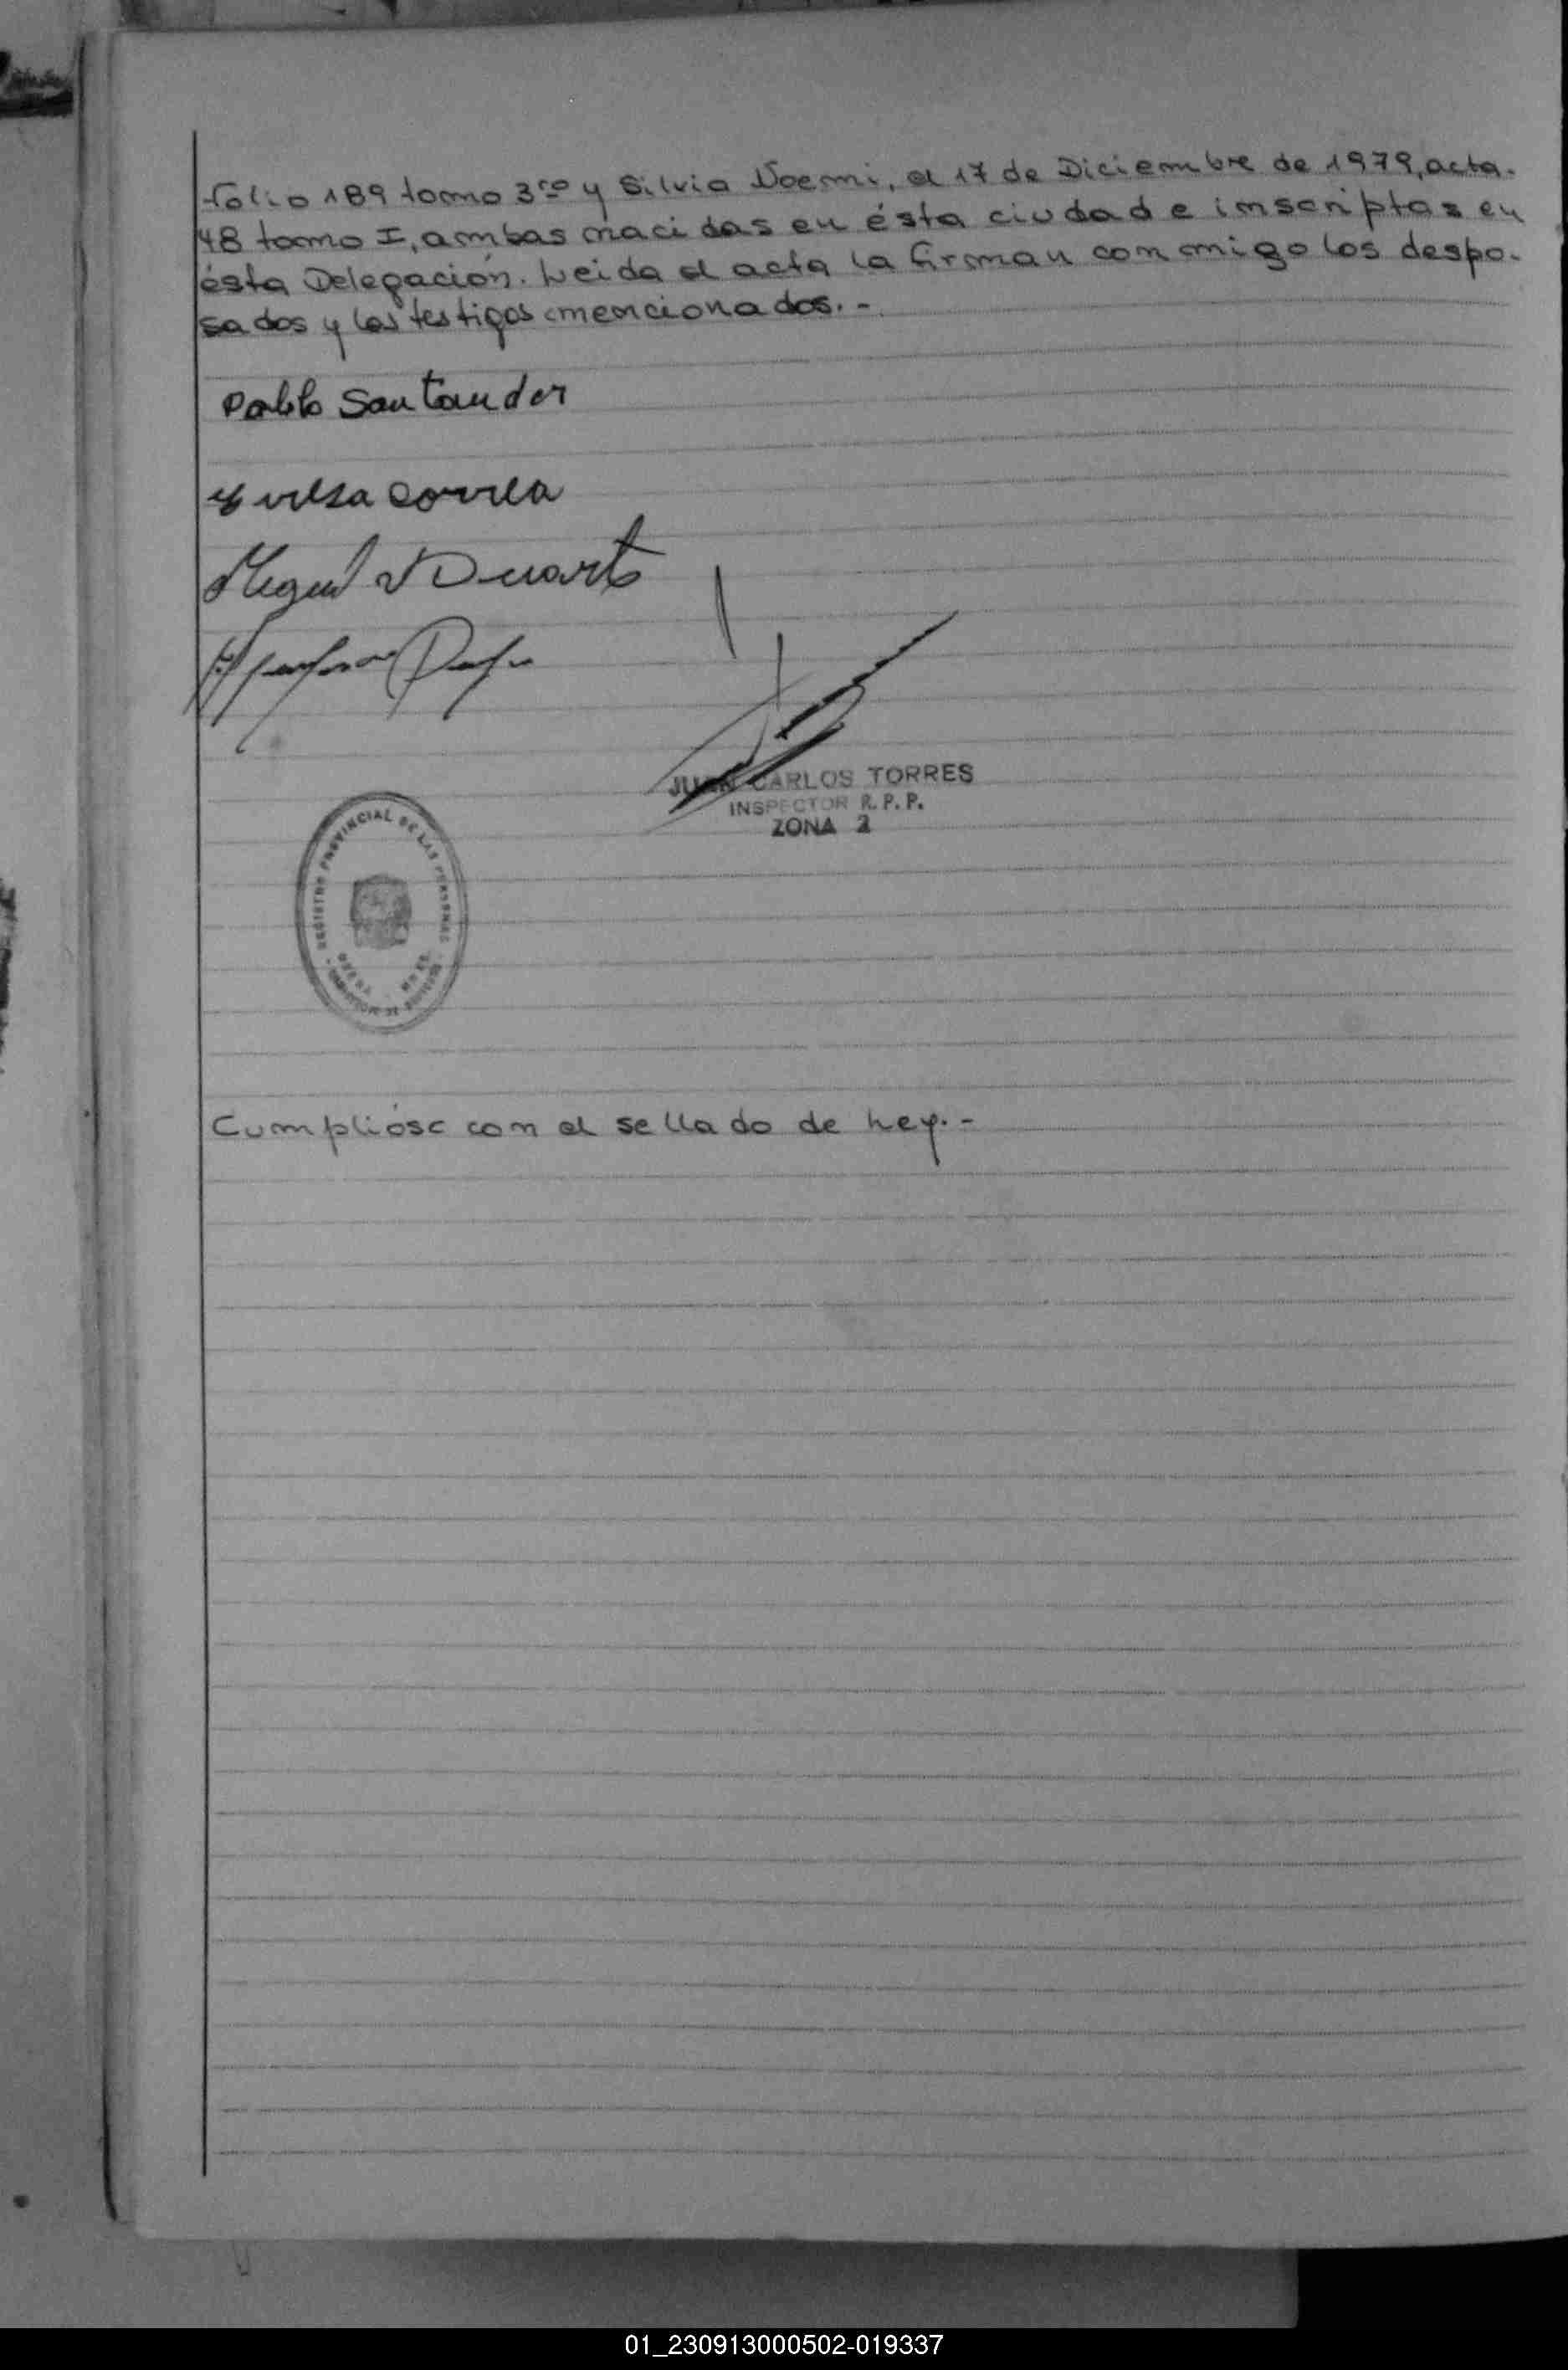 folio 189 tomo 3ro y Silvia Noemi, el 17 de Diciembre de 1979, acta.
48 tomo I, ambas nacidas en ésta ciudad e inscriptas en
ésta Delegación. Leida el acta la firman conmigo los despo-
sados y los testigos mencionados.-
Pablo Santander
Correa
Miguel Duarte
JUAN CARLOS TORRES
INSPECTOR R.P.P.
ZONA 2
REGISTRO PROVINCIAL DE LAS PERSONAS
Cumplióse con el sellado de Ley.-
01_230913000502-019337